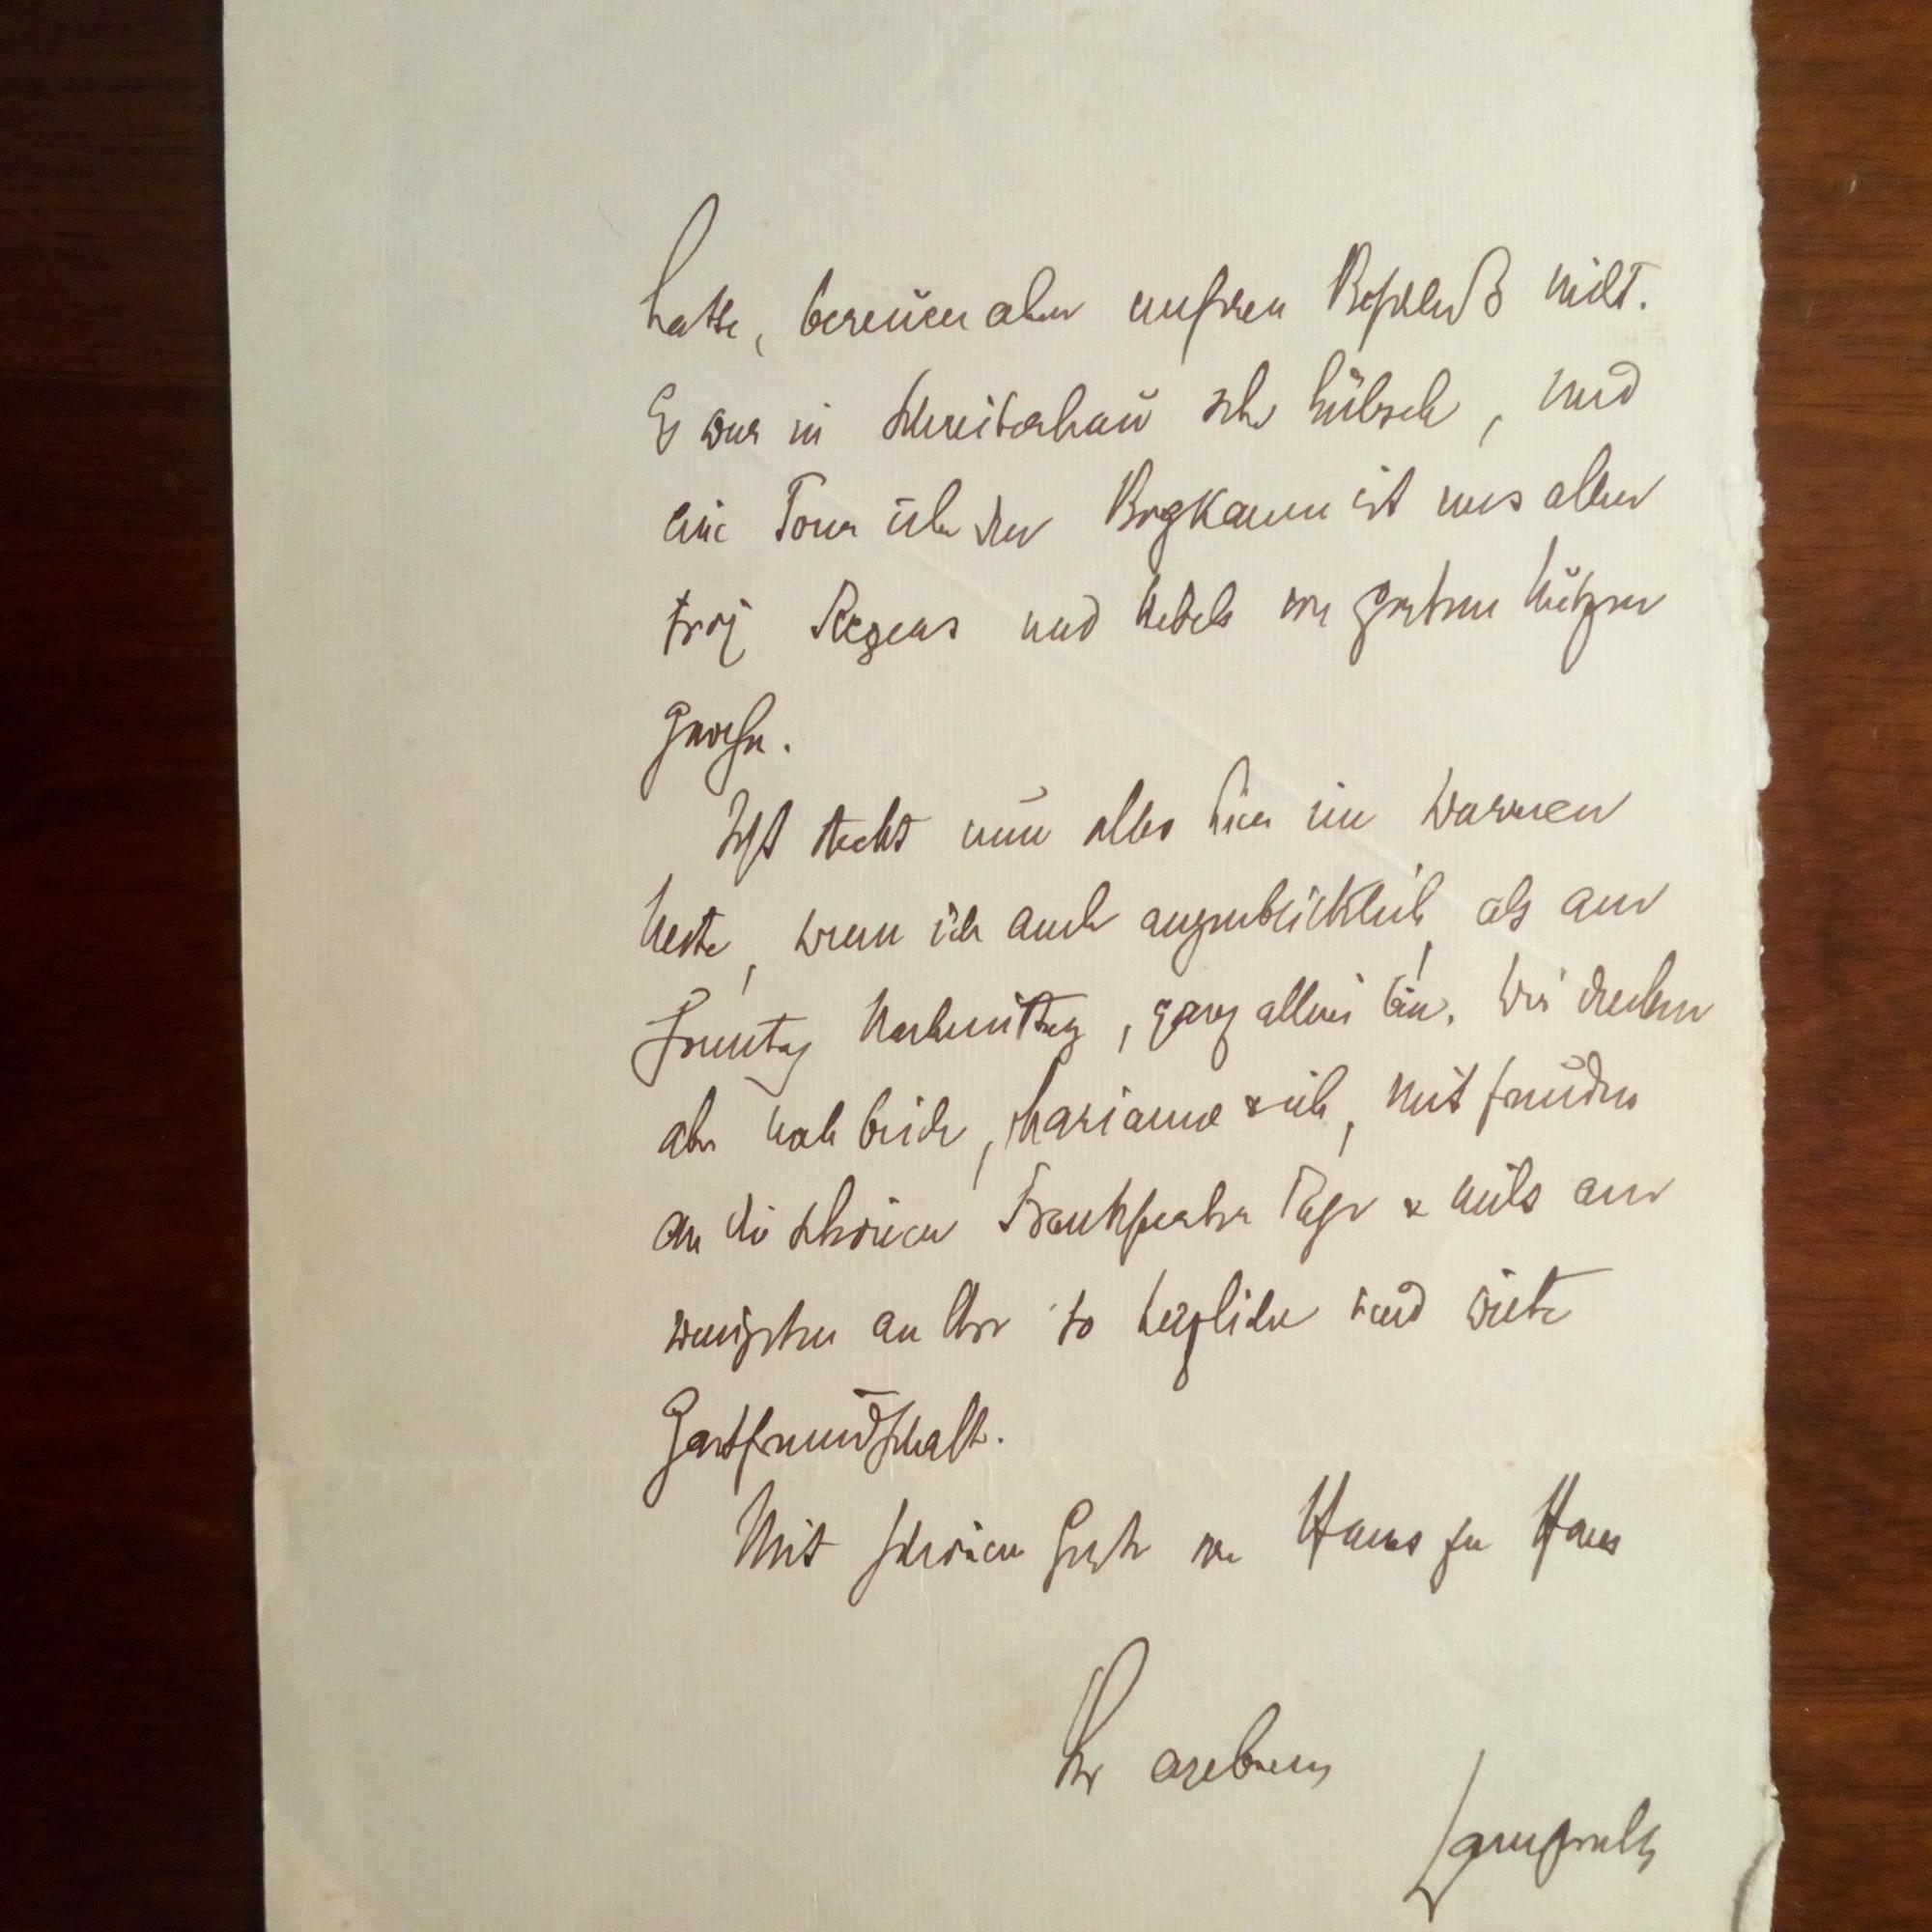 hatte, bereuen aber unsren Beschluß nicht.
Es war in Schreiberhau sehr hübsch, und
eine Tour über den Bergkamm ist uns allen
troz Regens und Nebels von gutem Nutzen
gewesen.
Jetzt steckt nun alles hier im warmen
Neste, wenn ich auch augenblicklich, als am
Sonntag Nachmittag, ganz allein bin. Wir denken
aber noch beide, Marianne & ich, mit Freuden
an die schönen Frankfurter Tage & nicht am
wenigsten an Ihre so herzliche und
Gastfreundschaft.
Mit schönen Grüßen von Haus zu Haus
Ihr ergebener
Lamprecht